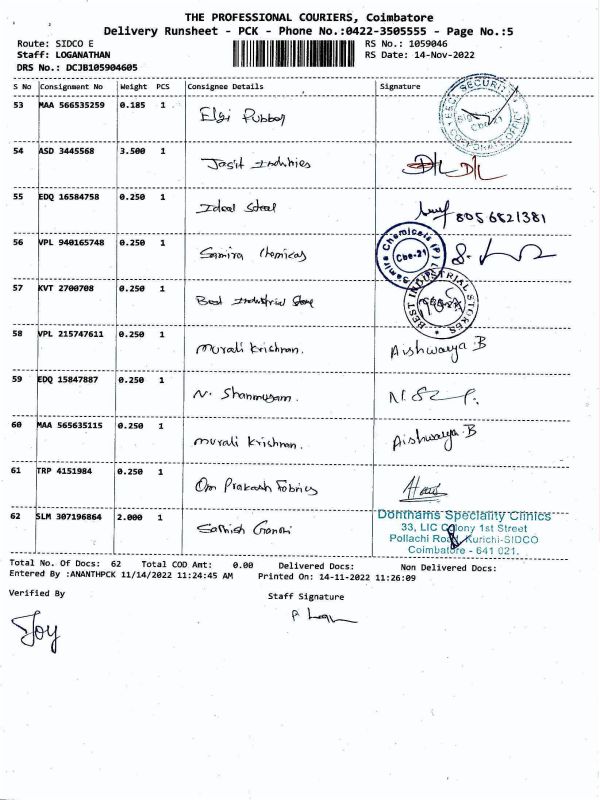 THE PROFESSIONAL COURIERS, Coimbatore
Delivery Runsheet - PCK - Phone No.:0422-3505555 - Page No.:5
Route: SIDCO E RS No.: 1059046
Staff: LOGANATHAN RS Date: 14-Nov-2022
DRS No.: DCJB105904605
S No Consignment No Weight PCS Consignee Details Signature
53 MAA 566535259 0.185 1 Elgi Rubber
SECURITY
Cbe-21
CORPORATE OFFICE
54 ASD 3445568 3.500 1 Jasit Industries
55 EDQ 16584758 0.250 1 Ideal Steel 8056821381
56 VPL 940165748 0.250 1 Samira Chemicas
Samira Chemicals (P)
Cbe-21
57 KVT 2700708 0.250 1 Best Industrial Store
BEST INDUSTRIAL STORES
58 VPL 215747611 0.250 1 Murali Krishnan. Aishwarya B
59 EDQ 15847887 0.250 1 N. Shanmugam.
60 MAA 565635115 0.250 1 Murali Krishnan. Aishwarya B
61 TRP 4151984 0.250 1 Om Prakash Fabrics
62 SLM 307196864 2.000 1 Sathish Gandhi
Donthams Speciality Clinics
33, LIC Colony 1st Street
Pollachi Road Kurichi-SIDCO
Coimbatore - 641 021.
Total No. Of Docs: 62 Total COD Amt: 0.00 Delivered Docs: Non Delivered Docs:
Entered By :ANANTHPCK 11/14/2022 11:24:45 AM Printed On: 14-11-2022 11:26:09
Verified By Staff Signature
Joy